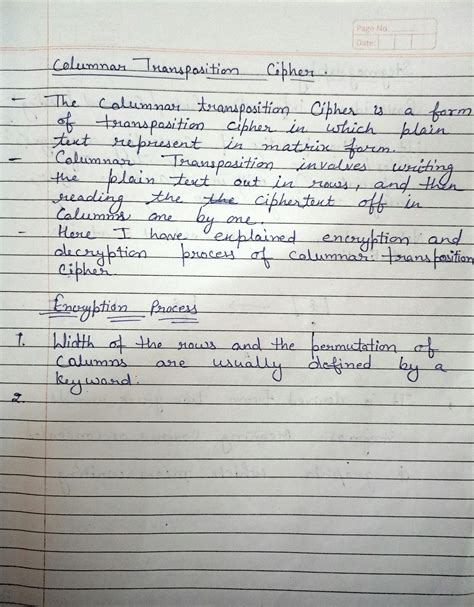 Page No.
Date:
Columnar Transposition Cipher
- The Columnar transposition Cipher is a form
of transposition cipher in which plain
text represent in matrix form.
- Columnar Transposition involves writing
the plain text out in rows, and then
reading the the ciphertext off in
Columns one by one.
- Here I have explained encryption and
decryption process of columnar transposition
Cipher.
Encryption Process
1. Width of the rows and the permutation of
Columns are usually defined by a
keyword.
2.